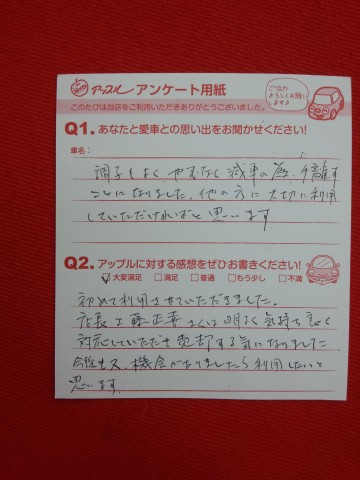 アップル アンケート用紙
ご協力
よろしくお願い
します♪
このたびは当店をご利用いただきありがとうございました。
Q1. あなたと愛車との思い出をお聞かせください!
車名:
調子もよく、やむなく減車の為、手離す
ことになりました。他の方に大切に利用
していただければと思います
Q2. アップルに対する感想をぜひお書きください!
☑大変満足 □満足 □普通 □もう少し □不満
初めて利用させていただきました。
店長工藤正喜さんは明るく気持ち良く
対応していただき売却する気になりました
今後も又、機会がありましたら利用したいと
思います。